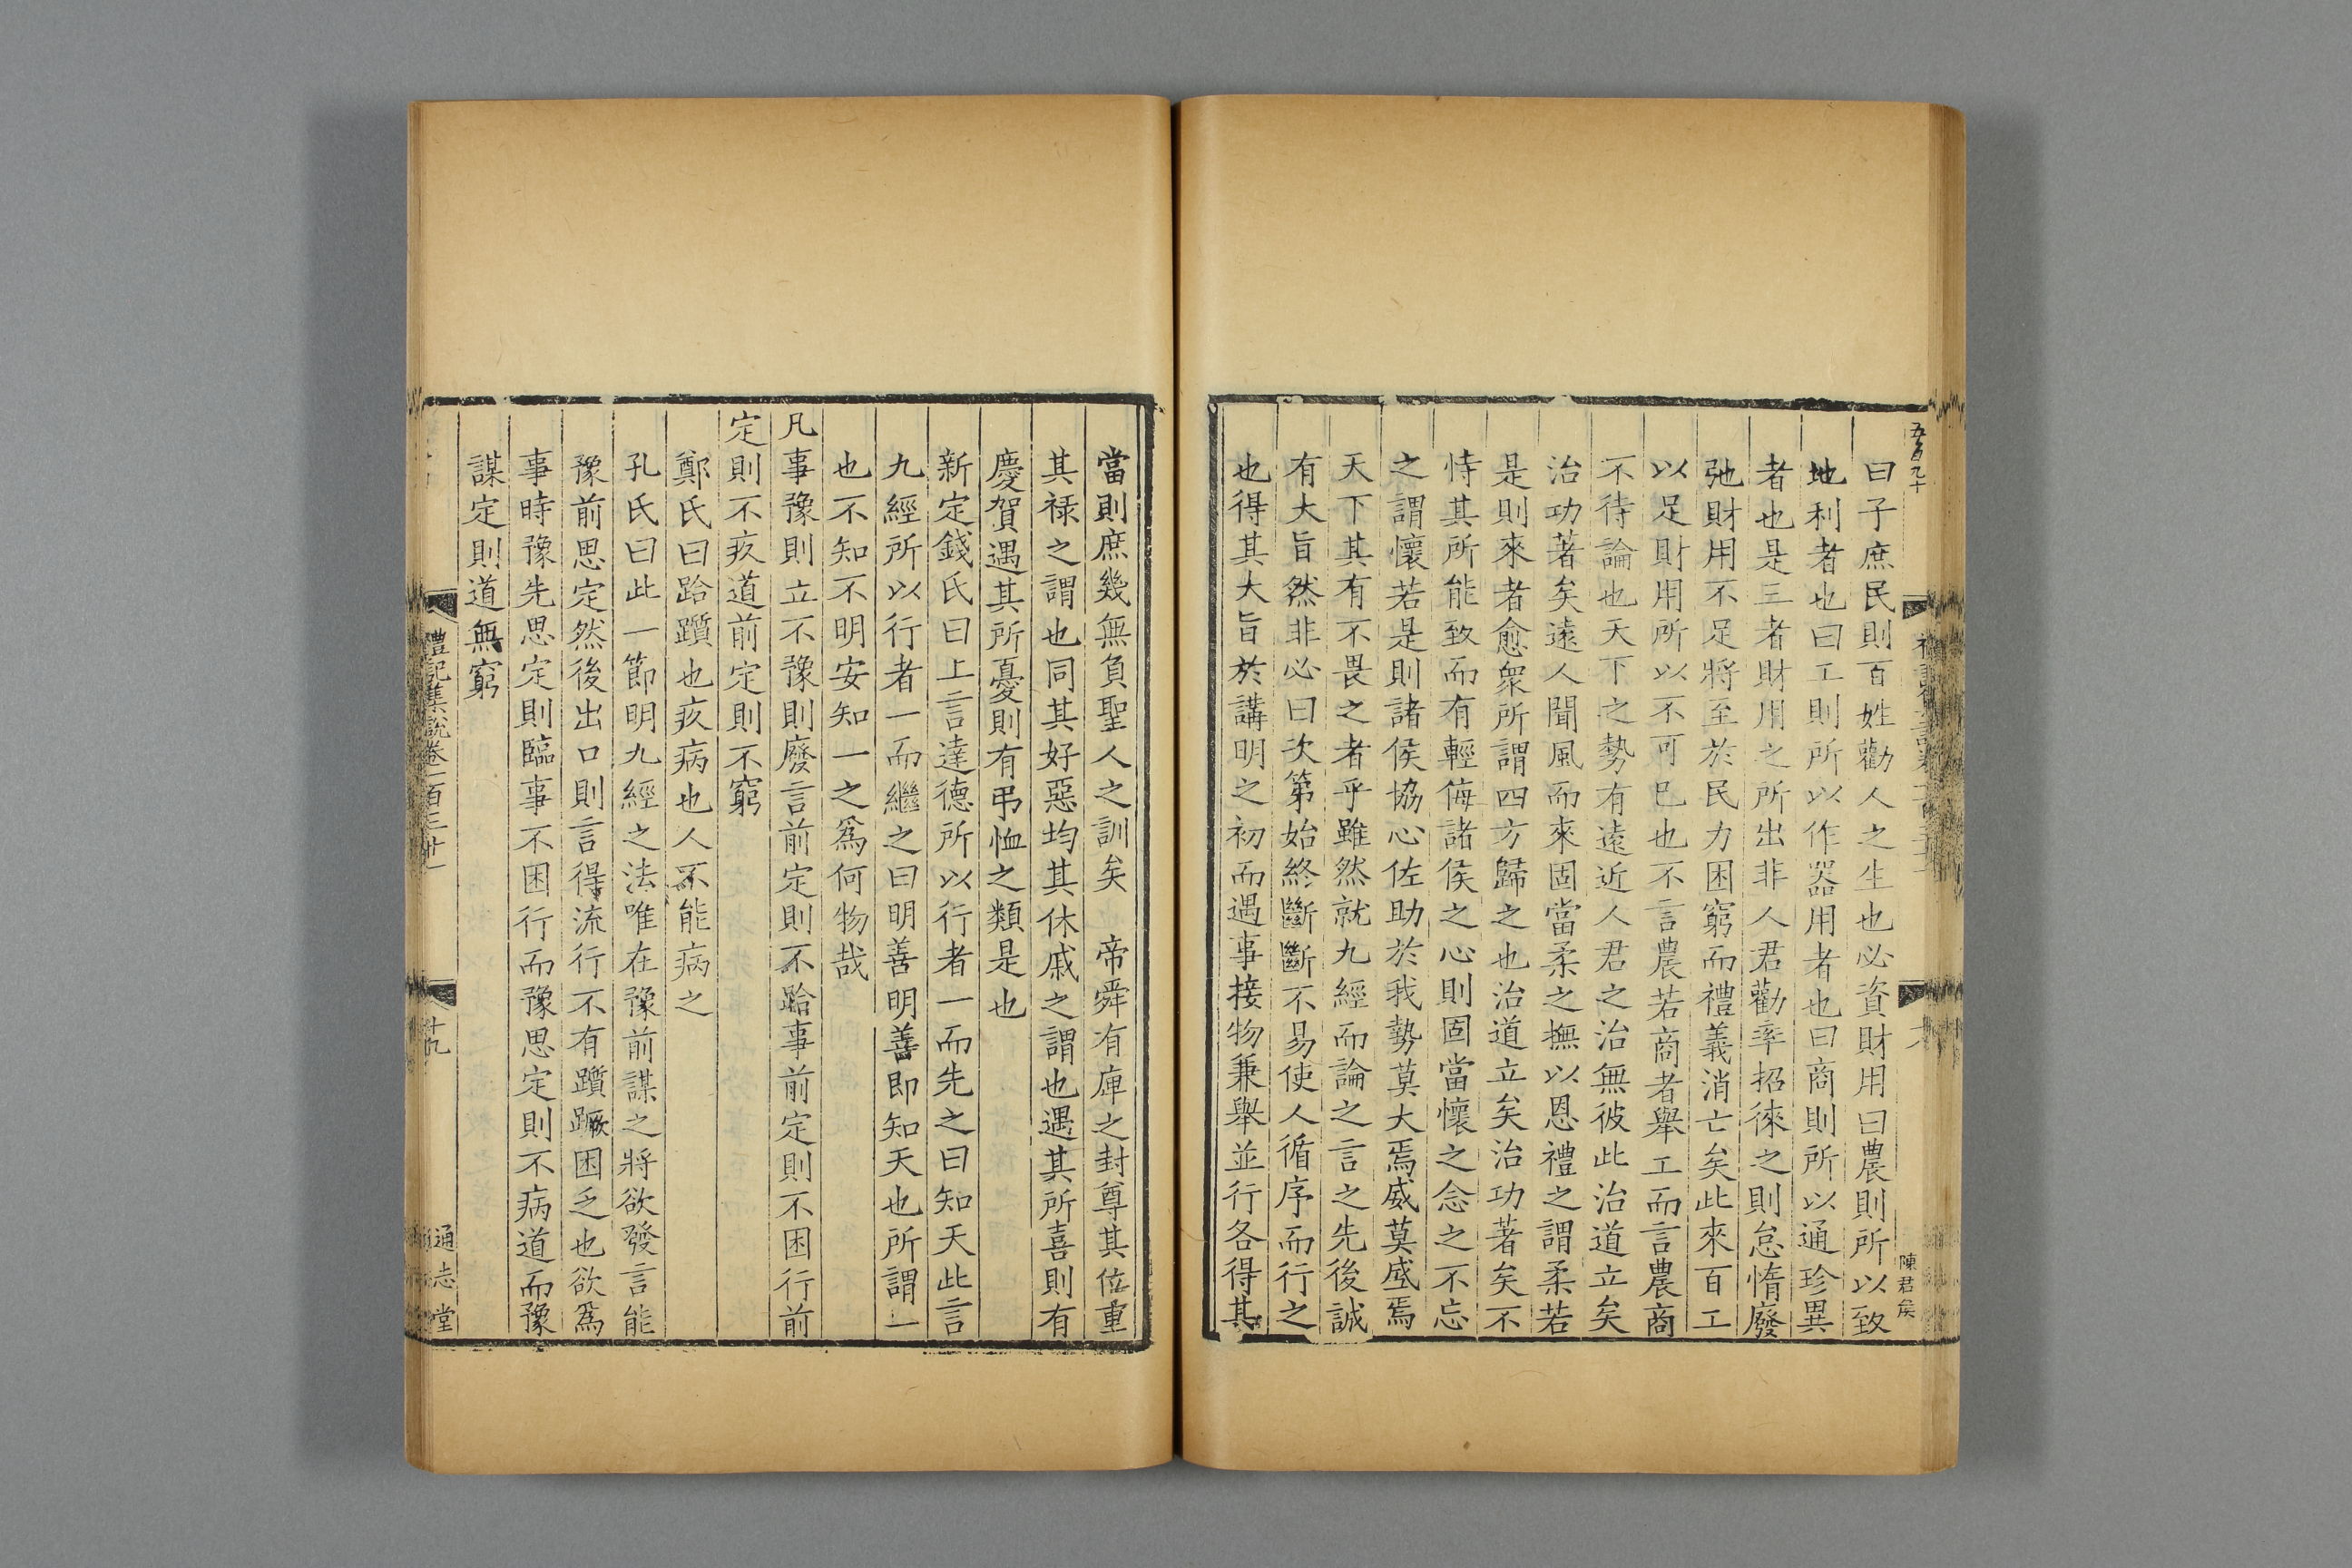 五百九十
陳君矦
曰子庶民則百姓勸人之生也必資財用曰農則所以致
地利者也曰工則所以作器用者也曰商則所以通珍異
者也是三者財用之所出非人君勸率招徠之則怠惰廢
弛財用不足將至於民力困窮而禮義消亡矣此來百工
以足財用所以不可巳也不言農若商者舉工而言農商
不待論也天下之勢有遠近人君之治無彼此治道立矣
治功著矣遠人聞風而來固當柔之撫以恩禮之謂柔若
是則來者愈衆所謂四方歸之也治道立矣治功著矣不
恃其所能致而有輕侮諸侯之心則固當懷之念之不忘
之謂懷若是則諸侯協心佐助於我勢莫大焉威莫盛焉
天下其有不畏之者乎雖然就九經而論之言之先後誠
有大旨然非必曰次第始終斷斷不易使人循序而行之
也得其大旨於講明之初而遇事接物兼舉並行各得其
當則庶幾無負聖人之訓矣　帝舜有庳之封尊其位重
其祿之謂也同其好惡均其休戚之謂也遇其所喜則有
慶賀遇其所憂則有弔恤之類是也
新定錢氏曰上言達德所以行者一而先之曰知天此言
九經所以行者一而繼之曰明善明善即知天也所謂一
也不知不明安知一之爲何物哉
凡事豫則立不豫則廢言前定則不跲事前定則不困行前
定則不疚道前定則不窮
鄭氏曰跲躓也疚病也人不能病之
孔氏曰此一節明九經之法唯在豫前謀之將欲發言能
豫前思定然後出口則言得流行不有躓蹶困乏也欲爲
事時豫先思定則臨事不困行而豫思定則不病道而豫
謀定則道無窮
禮記集說卷一百三十一
十九
通志堂